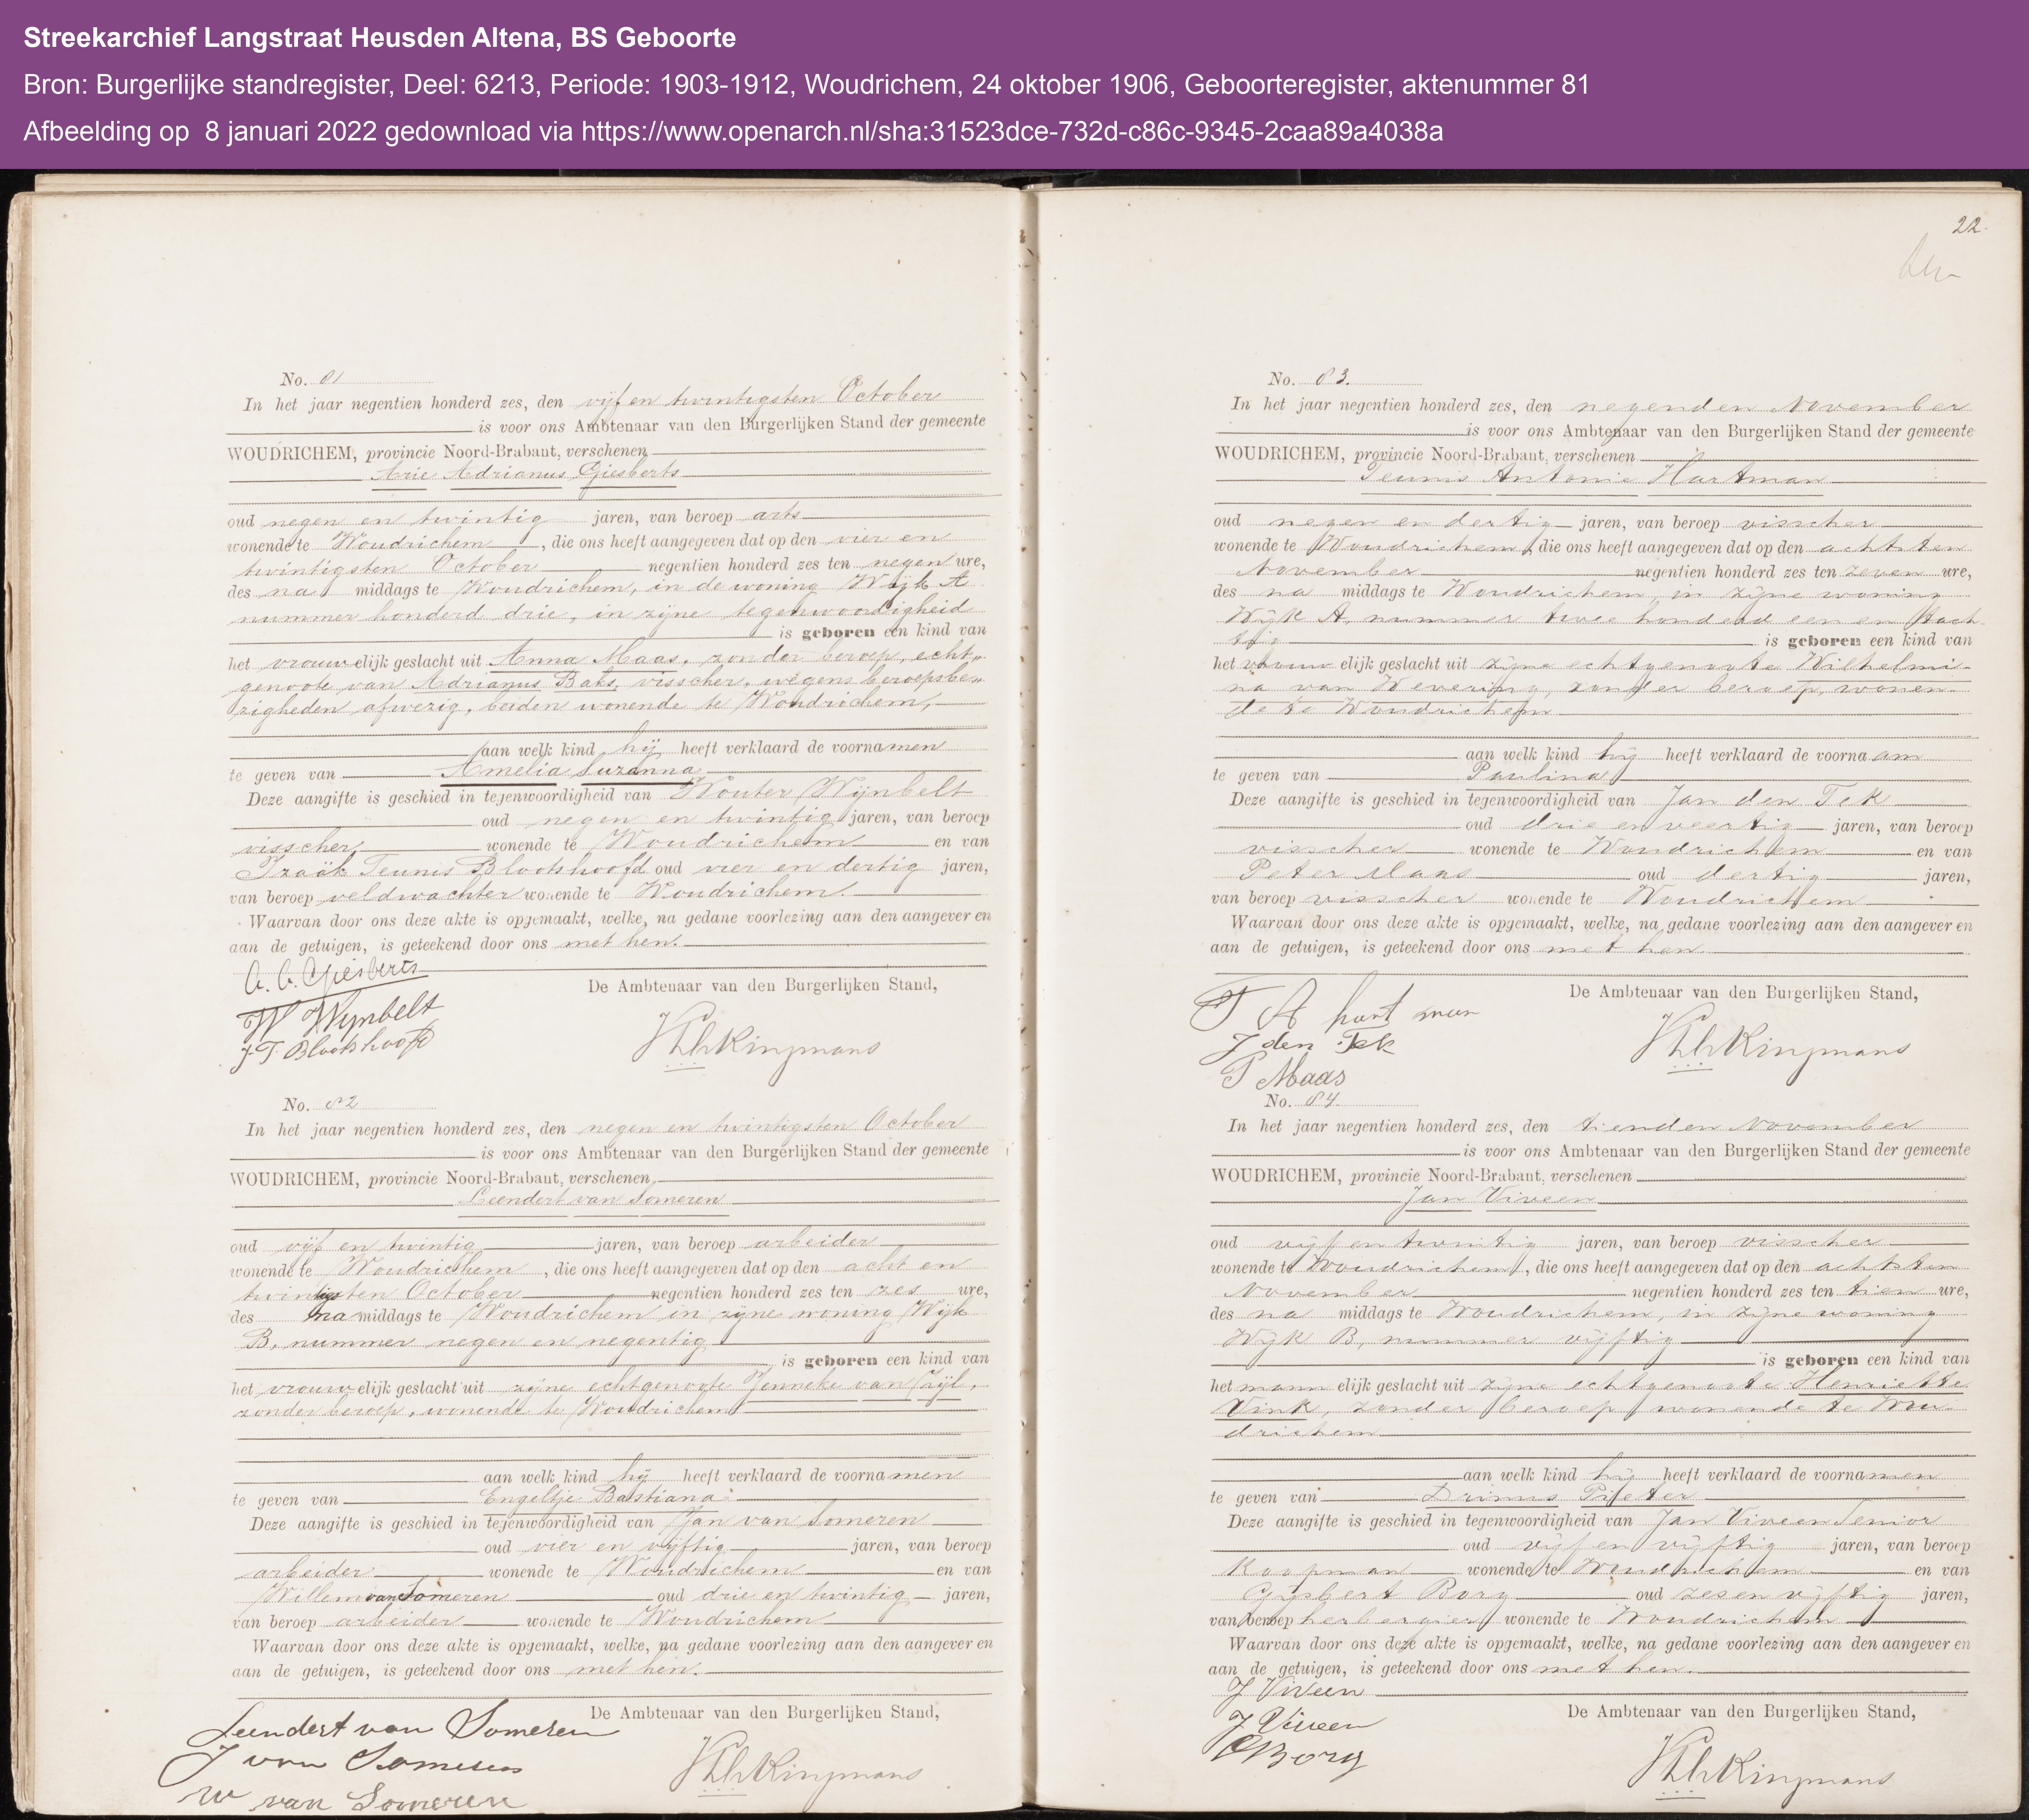 Streekarchief Langstraat Heusden Altena, BS Geboorte
Bron: Burgerlijke standregister, Deel: 6213, Periode: 1903-1912, Woudrichem, 24 oktober 1906, Geboorteregister, aktenummer 81
Afbeelding op 8 januari 2022 gedownload via https://www.openarch.nl/sha:31523dce-732d-c86c-9345-2caa89a4038a
No. 81
In het jaar negentien honderd zes, den vijf en twintigsten October
is voor ons Ambtenaar van den Burgerlijken Stand der gemeente
WOUDRICHEM, provincie Noord-Brabant, verschenen
Arie Adrianus Giesberts
oud negen en twintig jaren, van beroep arts
wonende te Woudrichem, die ons heeft aangegeven dat op den vier en
twintigsten October negentien honderd zes ten negen ure,
des na middags te Woudrichem, in de woning Wijk A
nummer honderd drie, in zijne tegenwoordigheid
is geboren een kind van
het vrouwelijk geslacht uit Anna Maas, zonder beroep, echt„
genoote van Adrianus Baks, visscher, wegens beroepsbe„
zigheden afwezig, beiden wonende te Woudrichem,
aan welk kind hij heeft verklaard de voornamen
te geven van Amelia Suzanna
Deze aangifte is geschied in tegenwoordigheid van Wouter Wijnbelt
oud negen en twintig jaren, van beroep
visscher wonende te Woudrichem en van
Izaäk Teunis Blootshoofd oud vier en dertig jaren,
van beroep veldwachter wonende te Woudrichem.
Waarvan door ons deze akte is opgemaakt, welke, na gedane voorlezing aan den aangever en
aan de getuigen, is geteekend door ons met hen.
A. A. Giesberts
De Ambtenaar van den Burgerlijken Stand,
W Wijnbelt
J. T. Blootshoofd
No. 82
In het jaar negentien honderd zes, den negen en twintigsten October
is voor ons Ambtenaar van den Burgerlijken Stand der gemeente
WOUDRICHEM, provincie Noord-Brabant, verschenen
Leendert van Someren
oud vijf en twintig jaren, van beroep arbeider
wonende te Woudrichem, die ons heeft aangegeven dat op den acht en
twintigsten October negentien honderd zes ten zes ure,
des na middags te Woudrichem in zijne woning Wijk
B, nummer negen en negentig
is geboren een kind van
het vrouwelijk geslacht uit zijne echtgenoote Jenneke van
zonder beroep, wonende te Woudrichem
aan welk kind hij heeft verklaard de voornamen
te geven van Engeltje Bastiana
Deze aangifte is geschied in tegenwoordigheid van Jan van Someren
oud vier en vijftig jaren, van beroep
arbeider wonende te Woudrichem en van
Willem van Someren oud drie en twintig jaren,
van beroep arbeider wonende te Woudrichem
Waarvan door ons deze akte is opgemaakt, welke, na gedane voorlezing aan den aangever en
aan de getuigen, is geteekend door ons met hen.
De Ambtenaar van den Burgerlijken Stand,
Leendert van Someren
J van Someren
W van Someren
22.
No. 83.
In het jaar negentien honderd zes, den negenden November
is voor ons Ambtenaar van den Burgerlijken Stand der gemeente
WOUDRICHEM, provincie Noord-Brabant, verschenen
Teunis Antonie Hartman
oud negen en dertig jaren, van beroep visscher
wonende te Woudrichem, die ons heeft aangegeven dat op den achtsten
November negentien honderd zes ten zeven ure,
des na middags te Woudrichem, in zijne woning
Wijk A, nummer twee honderd een en tach-
tig is geboren een kind van
het vrouwelijk geslacht uit zijne echtgenoote Wilhelmi-
na van Wevering, zonder beroep, wonen-
de te Woudrichem
aan welk kind hij heeft verklaard de voornaam
te geven van Paulina
Deze aangifte is geschied in tegenwoordigheid van Jan den Tek
oud drie en veertig jaren, van beroep
visscher wonende te Woudrichem en van
Peter Maas oud dertig jaren,
van beroep visscher wonende te Woudrichem
Waarvan door ons deze akte is opgemaakt, welke, na gedane voorlezing aan den aangever en
aan de getuigen, is geteekend door ons met hen
De Ambtenaar van den Burgerlijken Stand,
T A hartman
J den Tek
P Maas
No. 84.
In het jaar negentien honderd zes, den tienden November
is voor ons Ambtenaar van den Burgerlijken Stand der gemeente
WOUDRICHEM, provincie Noord-Brabant, verschenen
Jan Viveen
oud vijf en twintig jaren, van beroep visscher
wonende te Woudrichem, die ons heeft aangegeven dat op den achtsten
November negentien honderd zes ten tien ure,
des na middags te Woudrichem, in zijne woning
Wijk B, nummer vijftig
is geboren een kind van
het mannelijk geslacht uit zijne echtgenoote Henriette
Vink, zonder beroep wonende te Wou-
drichem
aan welk kind hij heeft verklaard de voornamen
te geven van Drimus Pieter
Deze aangifte is geschied in tegenwoordigheid van Jan Viveen Senior
oud vijf en vijftig jaren, van beroep
Koopman wonende te Woudrichem en van
Gijsbert Borg oud zes en vijftig jaren,
van beroep herbergier wonende te Woudrichem
Waarvan door ons deze akte is opgemaakt, welke, na gedane voorlezing aan den aangever en
aan de getuigen, is geteekend door ons met hen.
J Viveen
De Ambtenaar van den Burgerlijken Stand,
J Viveen
G Borg